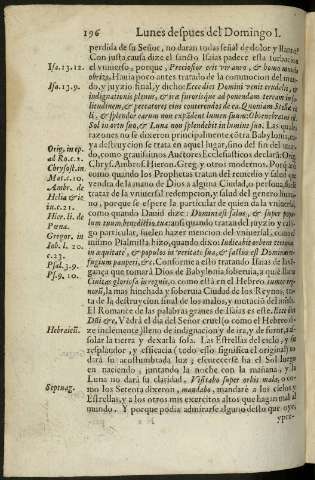 196 Lunes despues del Domingo I.
perdida de su Señor, no daran todas señal de dolor y llanto?
Con justa causa dize el sancto Isaias padece esta turbacion
Isa.13.12. el vniuerso, porque, Preciosior erit vir auro, & homo mundo
obrizo. Hauia poco antes tratado de la commocion del mun-
Isa.13.9. do, y juyzio final, y dicho: Ecce dies Domini veniet crudelis, &
indignationis plenus, & iræ furorisque ad ponendam terram in so-
litudinem, & peccatores eius conterendos de ea. Quoniam Stellæ cæ
li, & splendor earum non expandent lumen suum: Obtenebratus est
Sol in ortu suo, & Luna non splendebit in lumine suo. Las quales
razones no se dixeron principalmente côtra Babylonia, cu-
Orig. in ep. ya destruycion se trata en aquel lugar, sino del fin del mun-
ad Ro.c.2. do, como grauissimos Auctores Ecclesiasticos declarâ: Orig.
Chrysost.in Chrys. Ambros. Hieron. Greg. y otros modernos. Porque assi
Mat.c.10. como quando los Prophetas tratan del remedio y salud que
Ambr. de vendra de la mano de Dios a alguna Ciudad, o persona, suele
Helia & ie tratar de la vniuersal redempcion, y salud del genero huma-
iu.c.21. no, porque se espere la particular de quien da la vniuersal,
Hier. li. de como quando Dauid dize: Domini est salus, & super popu
Pœna. lum tuum benedictio tua: assi quando tratan del juyzio y casti-
Gregor. in go particular, suelen hazer mencion del vniuersal, como el
Iob. l. 20. mismo Psalmista hizo, quando dixo: Iudicabit orbem terrarum
c.23. in æquitate, & populos in veritate sua, & factus est Dominus re-
Psal.3.9. fugium pauperi, &c. Conforme a esto tratando Isaias de la ven-
Ps.9.10. gança que tomará Dios de Babylonia soberuia, a quié llama
Ciuitas gloriosa in regnis,
la, la mas hinchada y soberuia Ciudad de los Reynos, tra-
ta de la destruycion final de los malos, y mutacion del mûdo.
El Romance de las palabras graues de Isaias es este. Ecce dies
Dñi &c, Védrá el dia del Señor cruel (o como el Hebreo di-
Hebraicū. ze inclemente) lleno de indignacion y de ira, y de furor, a as-
solar la tierra y dexarla sola. Las Estrellas del cielo, y su
resplandor, y efficacia (todo esso significa el original) no
dará su acostumbrada luz y escurecerse ha el Sol luego
en naciendo, juntando la noche con la mañana, y la
Luna no dará su claridad, Visitabo super orbis mala, o co-
Septuag. mo los Setenta dizeron, mandabo, mandaré a los cielos y
Estrellas, y a los otros mis exercitos altos que hagan mal al
mundo. Y porque podia admirarse alguno desto que oyes